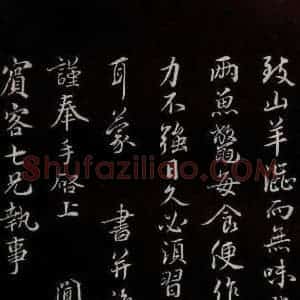 山羊而無味
兩魚鱉每食便作
力不強日久必須習
耳蒙 書并
謹奉手啓上
賓客七兄執事
Shufaziliao.com